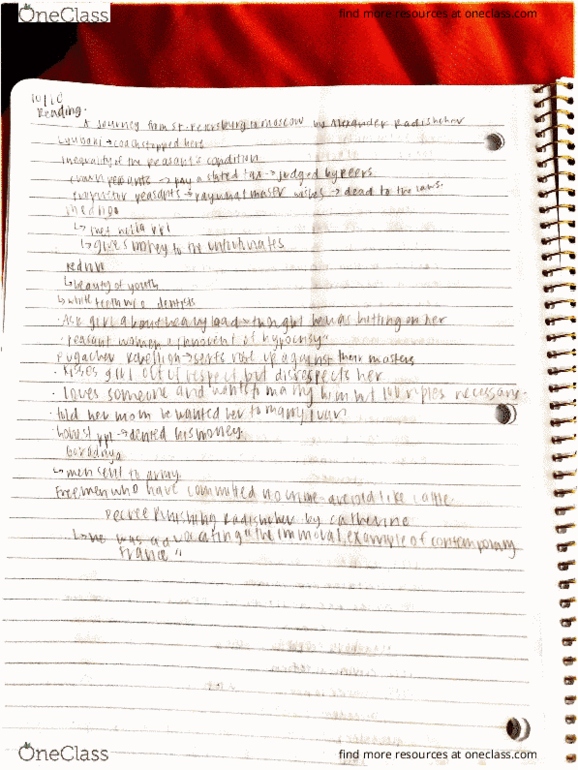 OneClass
find more resources at oneclass.com
10/10
Reading.
A journey from St. Petersburg to Moscow by Alexander Radishchev
coach stopped here
inequality of the peasant's condition
crown peasants → pay a stated tax → judged by peers
proprietor peasants → pay what master wishes → dead to the laws.
↳ gives money to the unfortunates
↳ beauty of youth
↳ white teeth w/o dentists
· Ask girl about heavy load → thought he was hitting on her
· peasant women "innocent of hypocrisy"
Pugachev rebellion → serfs rose up against their masters
· kisses girl out of respect but disrespects her
· loves someone and wants to marry him but 100 rubles necessary.
· told her mom he wanted her to marry Ivan
· honest ppl → denied his money
↳ men sent to army
Free men who have committed no crime are sold like cattle.
Decree Punishing Radishchev by Catherine
↳ he was advocating "the immoral example of contemporary
France"
OneClass
find more resources at oneclass.com